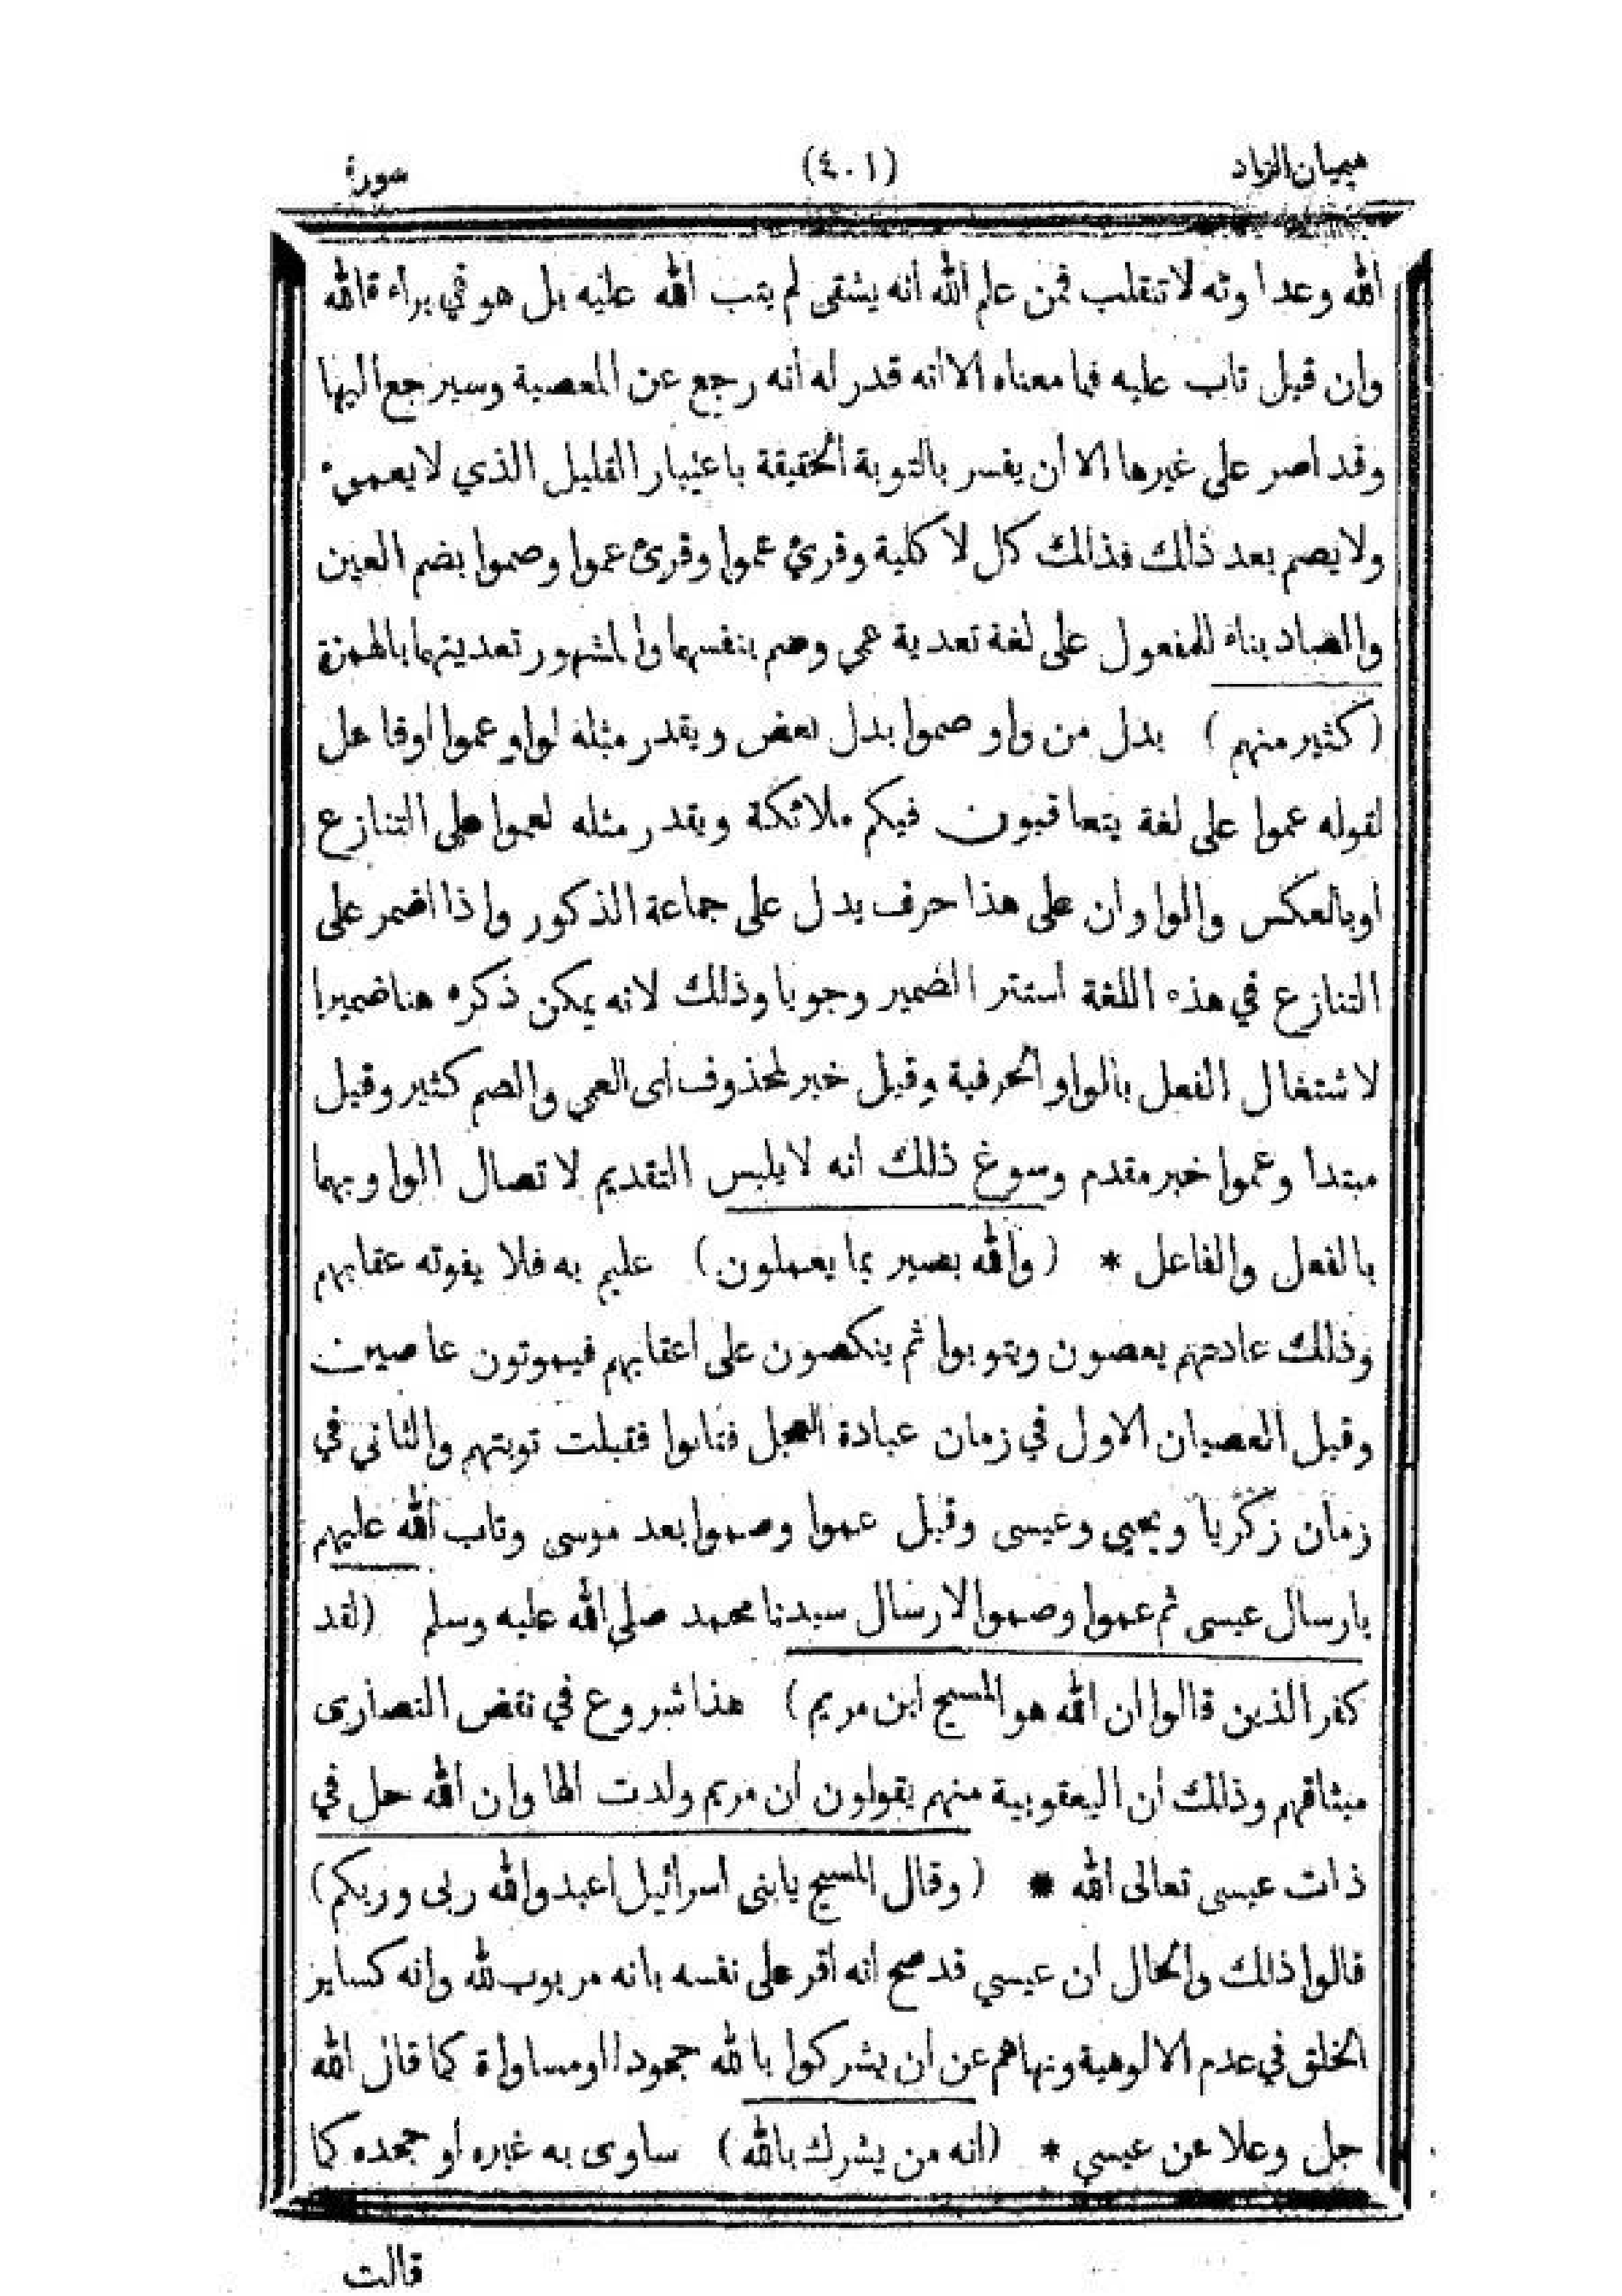 هيميان الزاد (٤٠١) سورة
الله وعداوته لا تنقلب فمن علم الله أنه يشقى لم يتب الله عليه بل هو في براءة الله
وان قيل تاب عليه فما معناه الا أنه قدر له أنه رجع عن المعصية وسيرجع اليها
وقد اصر على غيرها الا أن يفسر بالتوبة الحقيقة باعتبار القليل الذي لا يعمى
ولا يصم بعد ذلك فذالك كل لا كلية وقرئ عموا وقرئ عموا وصموا بضم العين
والصاد بناء للمفعول على لغة تعدية عمي وصم بنفسهما والمشهور تعديتهما بالهمزة
(كثير منهم) بدل من واو صموا بدل بعض ويقدر مثله لواو عموا اوفاعل
لقوله عموا على لغة يتعاقبون فيكم ملائكة ويقدر مثله لعموا على التنازع
أوبالعكس والواوان على هذا حرف يدل على جماعة الذكور واذا اضمر على
التنازع في هذه اللغة استتر الضمير وجوبا وذلك لانه يمكن ذكره هنا ضميرا
لاشتغال الفعل بالواو الحرفية وقيل خبر لمحذوف اى العمي والصم كثير وقيل
مبتدا وعموا خبر مقدم وسوغ ذلك انه لا يلبس التقديم لاتصال الواو بهما
بالفعل والفاعل * (والله بصير بما يعملون) عليم به فلا يفوته عقابهم
وذلك عادتهم يعصون ويتوبوا ثم ينكصون على اعقابهم فيموتون عاصين
وقيل العصيان الاول في زمان عبادة العجل فتابوا فقبلت توبتهم والثاني في
زمان زكريا ويحيى وعيسى وقيل عموا وصموا بعد موسى وتاب الله عليهم
بارسال عيسى ثم عموا وصموا لارسال سيدنا محمد صلى الله عليه وسلم (لقد
كفر الذين قالوا ان الله هو المسيح ابن مريم) هذا شروع في نقض النصارى
ميثاقهم وذلك أن اليعقوبية منهم يقولون ان مريم ولدت الها وان الله حل في
ذات عيسى تعالى الله * (وقال المسيح يابنى اسرائيل اعبدوا الله ربى وربكم)
قالوا ذلك والحال ان عيسي قد صح انه أقر على نفسه بانه مربوب لله وانه كساير
الخلق في عدم الالوهية ونهاهم عن ان يشركوا بالله جحودا اومساواة كما قال الله
جل وعلا عن عيسي * (انه من يشرك بالله) ساوى به غيره او جحده كما
قالت